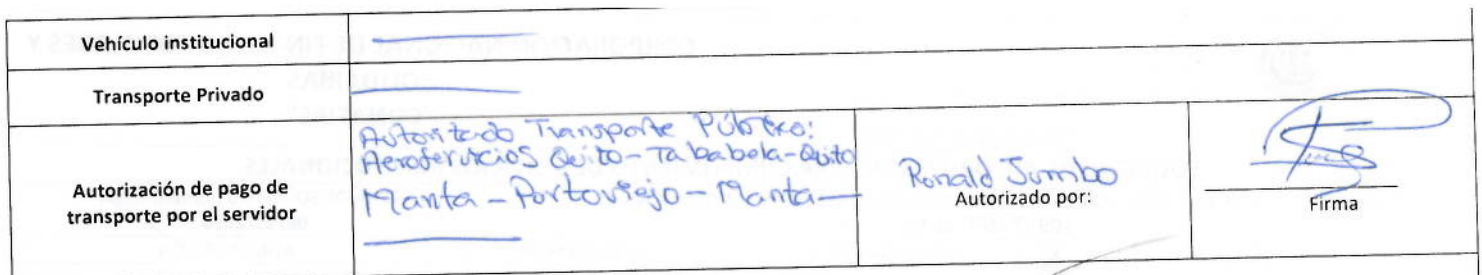 Vehículo institucional
Transporte Privado
Autorización de pago de
transporte por el servidor
Autorizado Transporte Público:
Aeroservicios Quito - Tababela - Quito
Manta - Portoviejo - Manta -
Ronald Jumbo
Autorizado por:
Firma